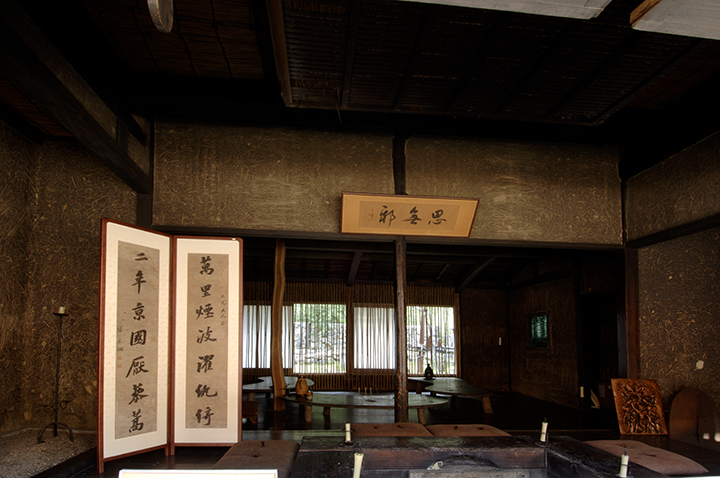 思無邪
萬里煙波濯紈綺
二年京國厭藜蒿